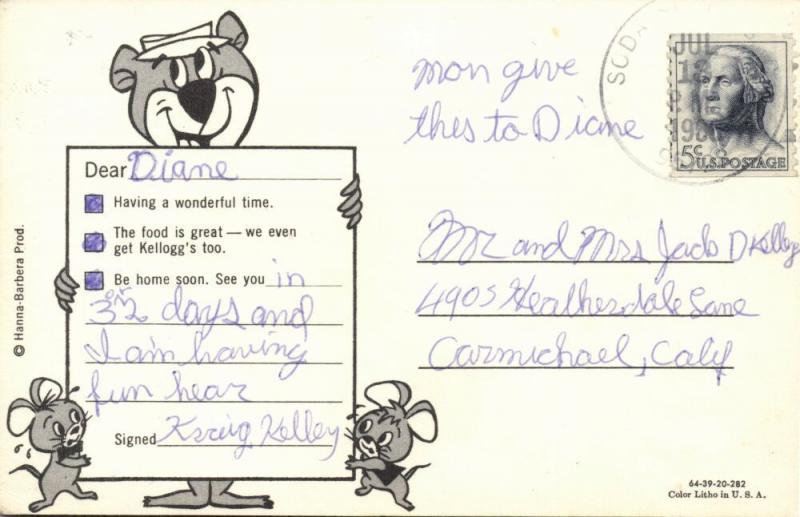 © Hanna-Barbera Prod.
Dear Diane
Having a wonderful time.
The food is great — we even
get Kellogg's too.
Be home soon. See you in
3 or 2 days and
I am having
fun hear
Signed Kraig Kelley
mon give
this to Diane
SODA
JUL
13
PM
5c U.S. POSTAGE
Mr and Mrs Jack D Kelley
4905 Heatherdale Lane
Carmichael, Calif
64-39-20-282
Color Litho in U. S. A.